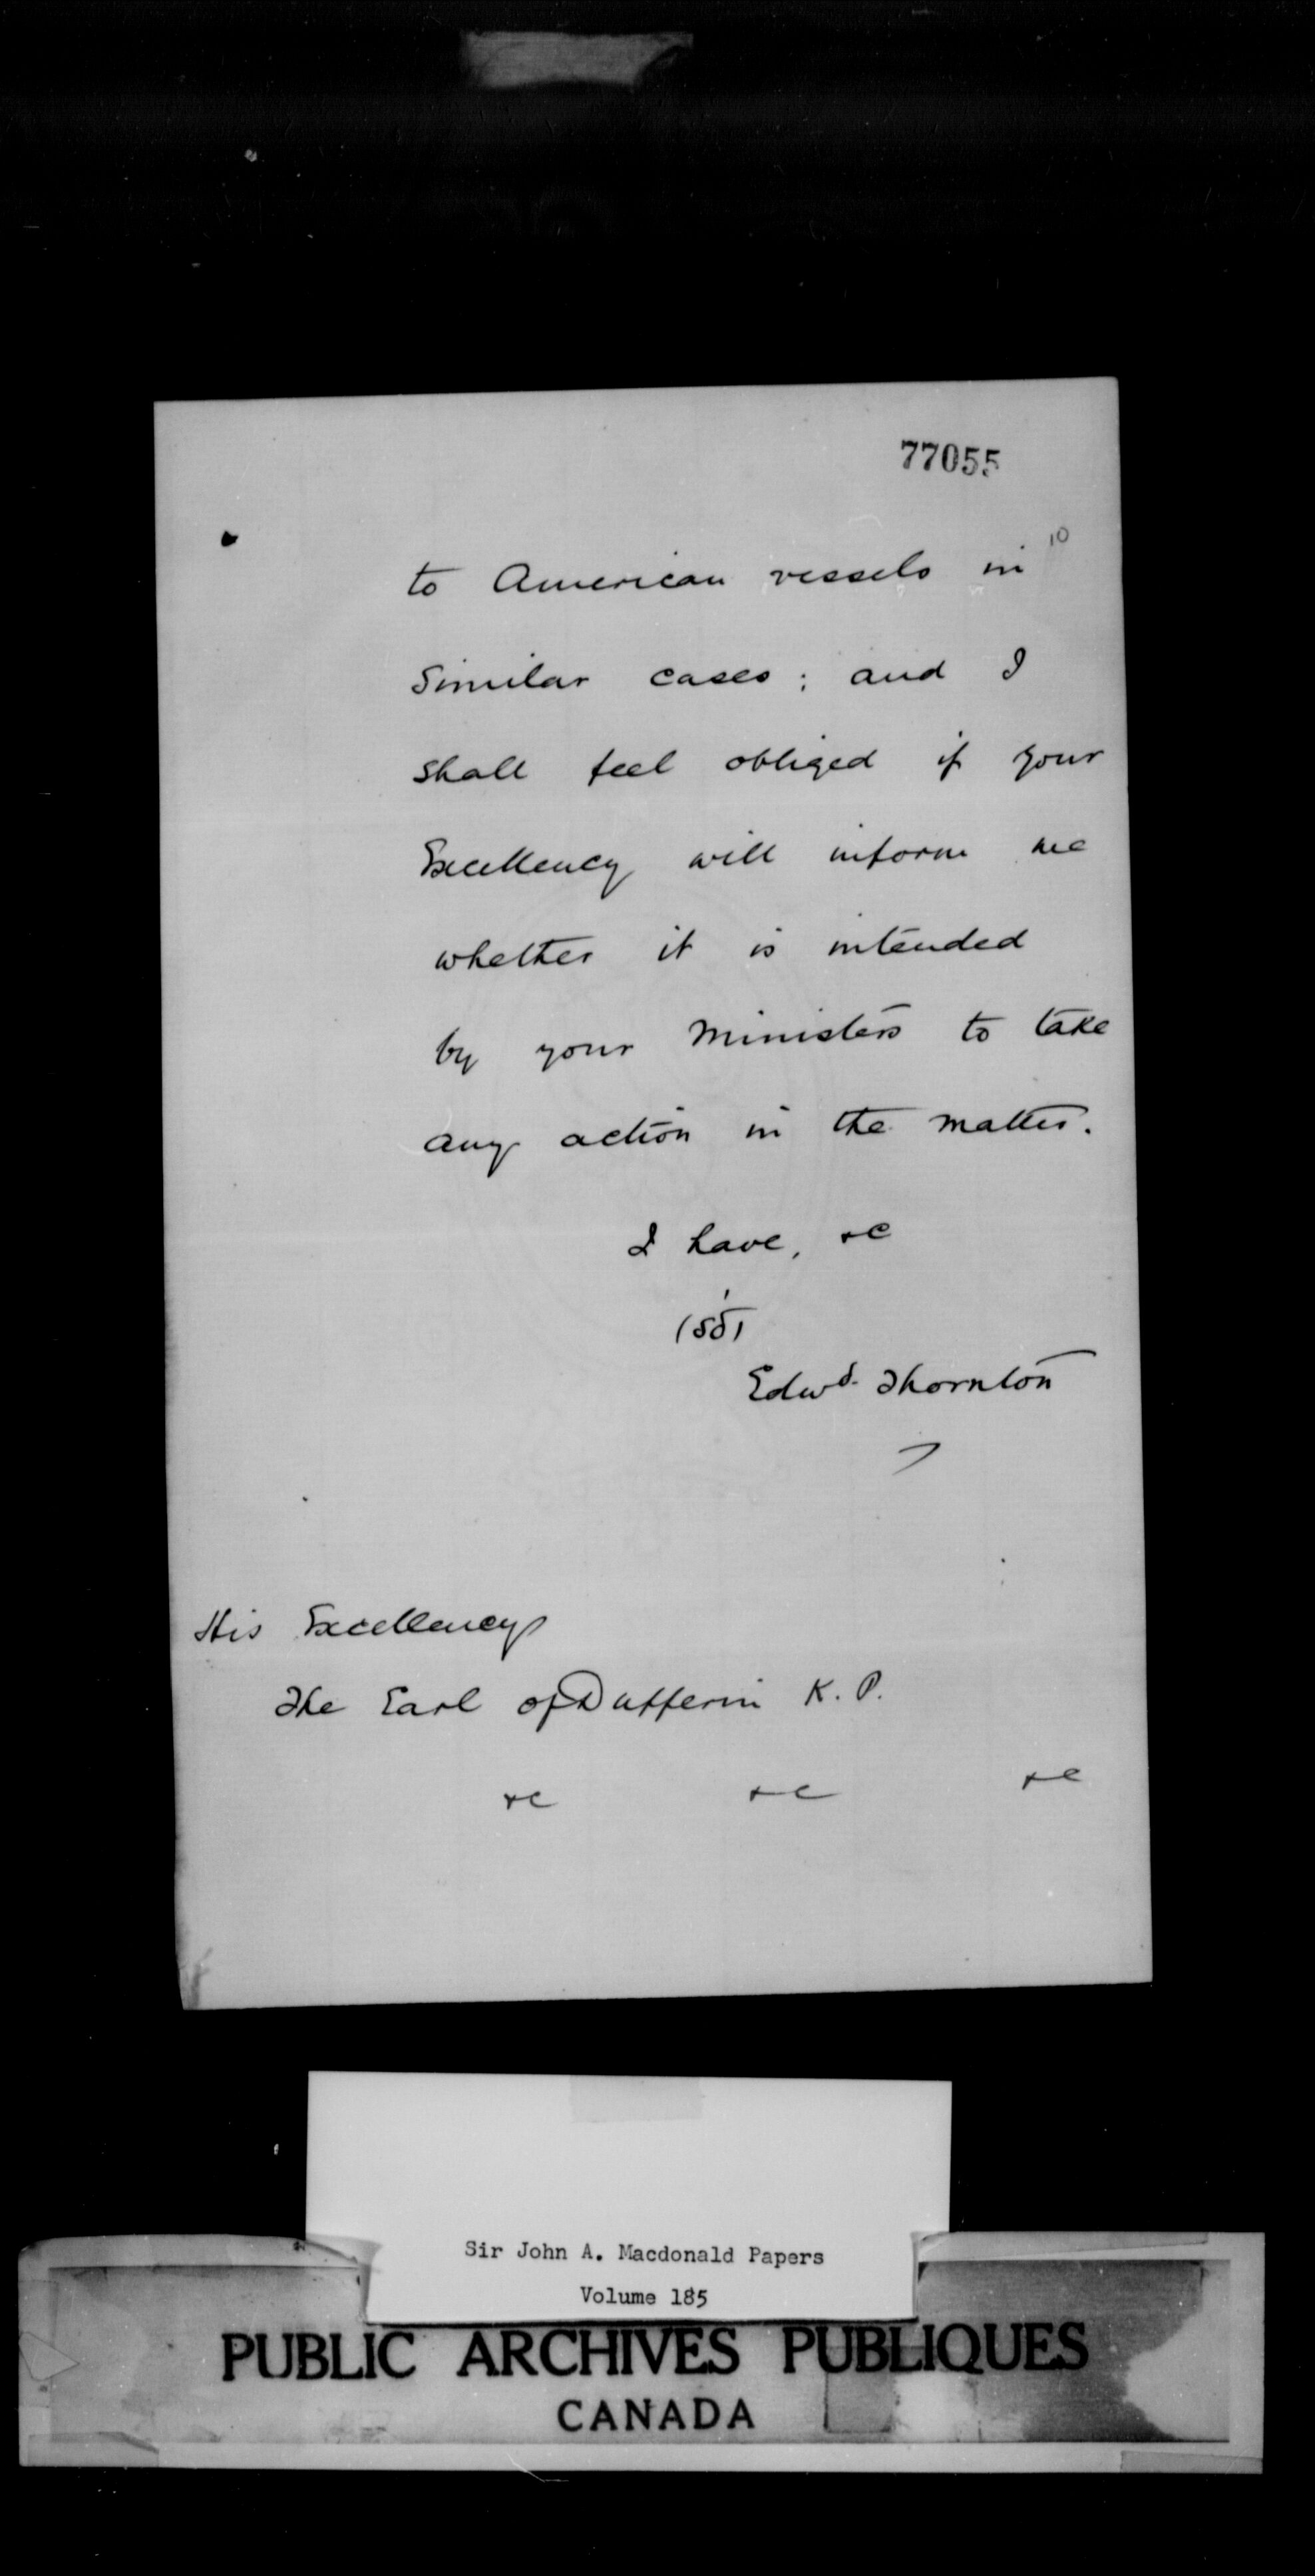 77055
10
to American vessels in
Similar cases; and I
shall feel obliged if your
Excellency will inform me
whether it is intended
by your Ministers to take
any action in the matter.
I have, &c
(sd)
Edwd. Thornton
His Excellency
The Earl of Dufferin K. P.
&c &c &c
Sir John A. Macdonald Papers
Volume 185
PUBLIC ARCHIVES PUBLIQUES
CANADA